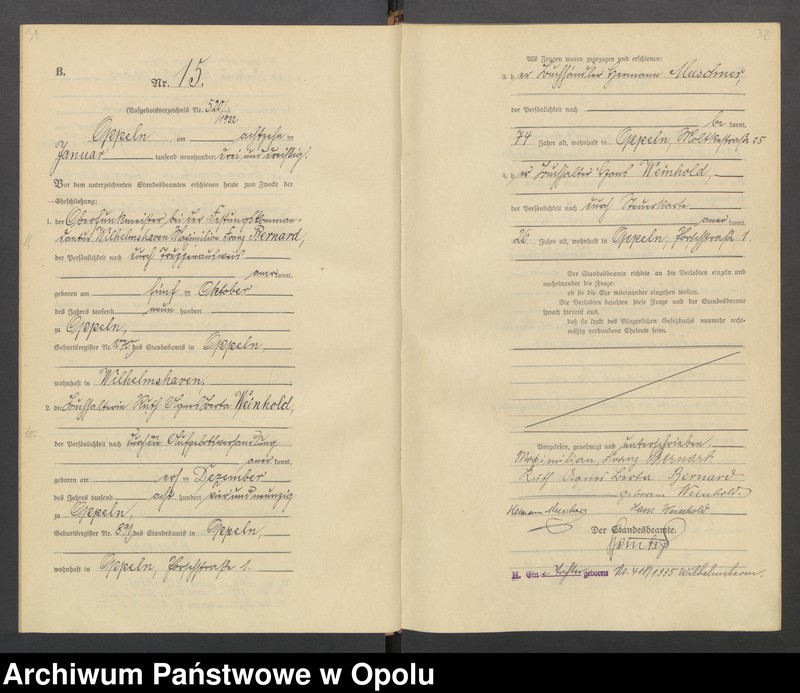 31
B.
Nr. 15.
(Aufgebotsverzeichnis Nr. 520/
1932
Oppeln am achtzehn ten
Januar tausend neunhundert drei und dreißig.
Vor dem unterzeichneten Standesbeamten erschienen heute zum Zwecke der
Eheschließung:
1. der Oberfunkmeister bei der Festungskomman-
dantur Wilhelmshaven Maximilian Franz Bernard,
der Persönlichkeit nach durch Truppenausweis
anerkannt,
geboren am fünf ten Oktober
des Jahres tausend neun hundert
zu Oppeln,
Geburtsregister Nr. des Standesamts in Oppeln,
wohnhaft in Wilhelmshaven,
2. die Buchhalterin Ruth Agnes Berta Weinhold,
der Persönlichkeit nach durch die Aufgebotsverhandlung
anerkannt,
geboren am ersten Dezember
des Jahres tausend acht hundert vier und neunzig
zu Oppeln,
Geburtsregister Nr. des Standesamts in Oppeln,
wohnhaft in Oppeln, 1.
32
Als Zeugen waren zugezogen und erschienen:
3. der Buchhändler Hermann Muschner,
der Persönlichkeit nach
be kannt,
74 Jahre alt, wohnhaft in Oppeln, Moltkestraße 25
4. der Buchhalter Hans Weinhold,
der Persönlichkeit nach durch Steuerkarte
anerkannt,
26 Jahre alt, wohnhaft in Oppeln, 1.
Der Standesbeamte richtete an die Verlobten einzeln und
nacheinander die Frage:
ob sie die Ehe miteinander eingehen wollen.
Die Verlobten bejahten diese Frage und der Standesbeamte
sprach hierauf aus,
daß sie kraft des Bürgerlichen Gesetzbuchs nunmehr recht-
mäßig verbundene Eheleute seien.
Vorgelesen, genehmigt und unterschrieben
Maximilian, Franz Bernard
Ruth Agnes Berta Bernard
geborene Weinhold.
Hermann Muschner Hans Weinhold
Der Standesbeamte.
H. Eine Tochter geboren Nr. 1935 Wilhelmshaven.
Archiwum Państwowe w Opolu